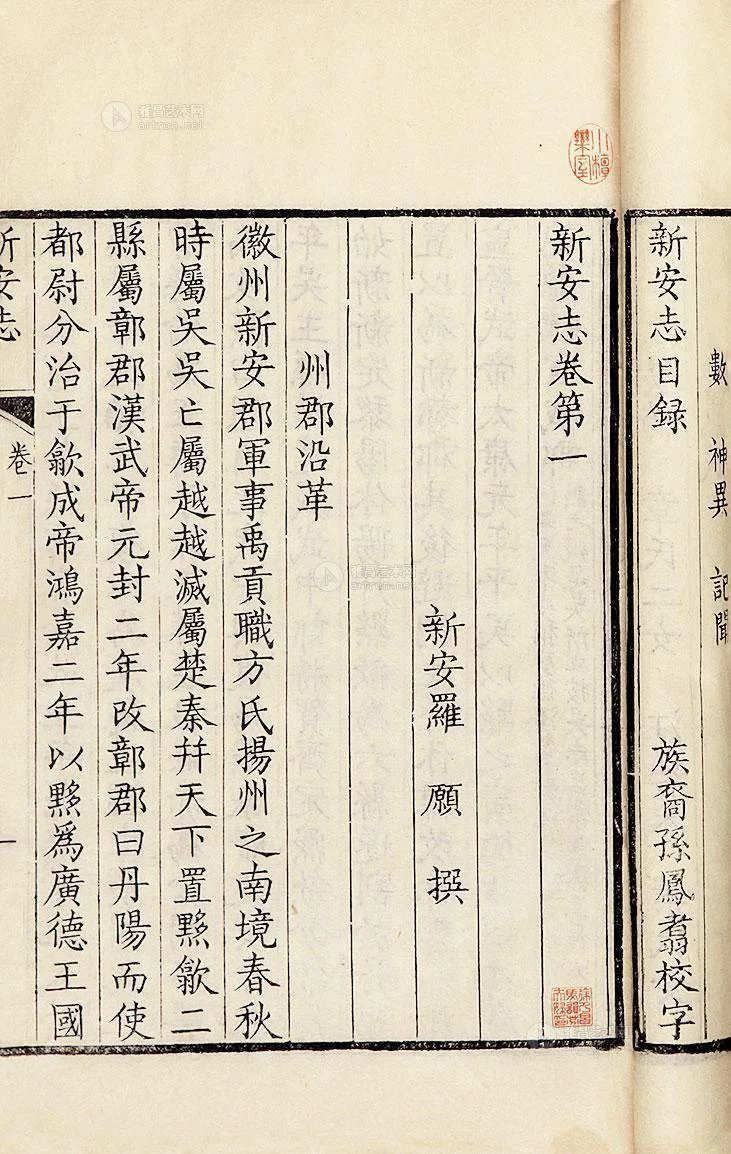 數 神異 記聞
新安志目錄 族裔孫鳳翥校字
新安志卷第一
新安羅 願 撰
州郡沿革
徽州新安郡軍事禹貢職方氏揚州之南境春秋
時屬吳吳亡屬越越滅屬楚秦幷天下置黟歙二
縣屬鄣郡漢武帝元封二年改鄣郡曰丹陽而使
都尉分治于歙成帝鴻嘉二年以黟爲廣德王國
新安志 卷一 一
雅昌艺术网
artron.net
雅昌艺术网
artron.net